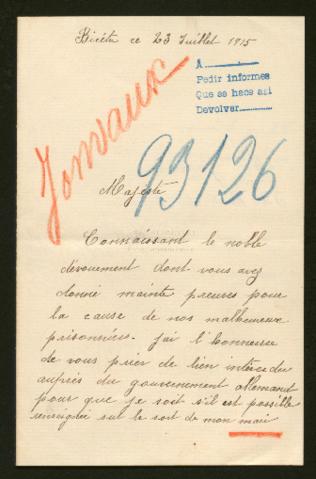 Bicêtre ce 23 Juillet 1915
A
Pedir informes
Que se hace asi
Devolver
Jonvaux
93126
Majesté
Connaissant le noble
dévouement dont vous avez
donné mainte preuves pour
la cause de nos malheureux
prisonniers. j'ai l'honneur
de vous prier de bien intercéder
auprès du gouvernement Allemand
pour que je soit s'il est possible
renseignée sur le sort de mon mari